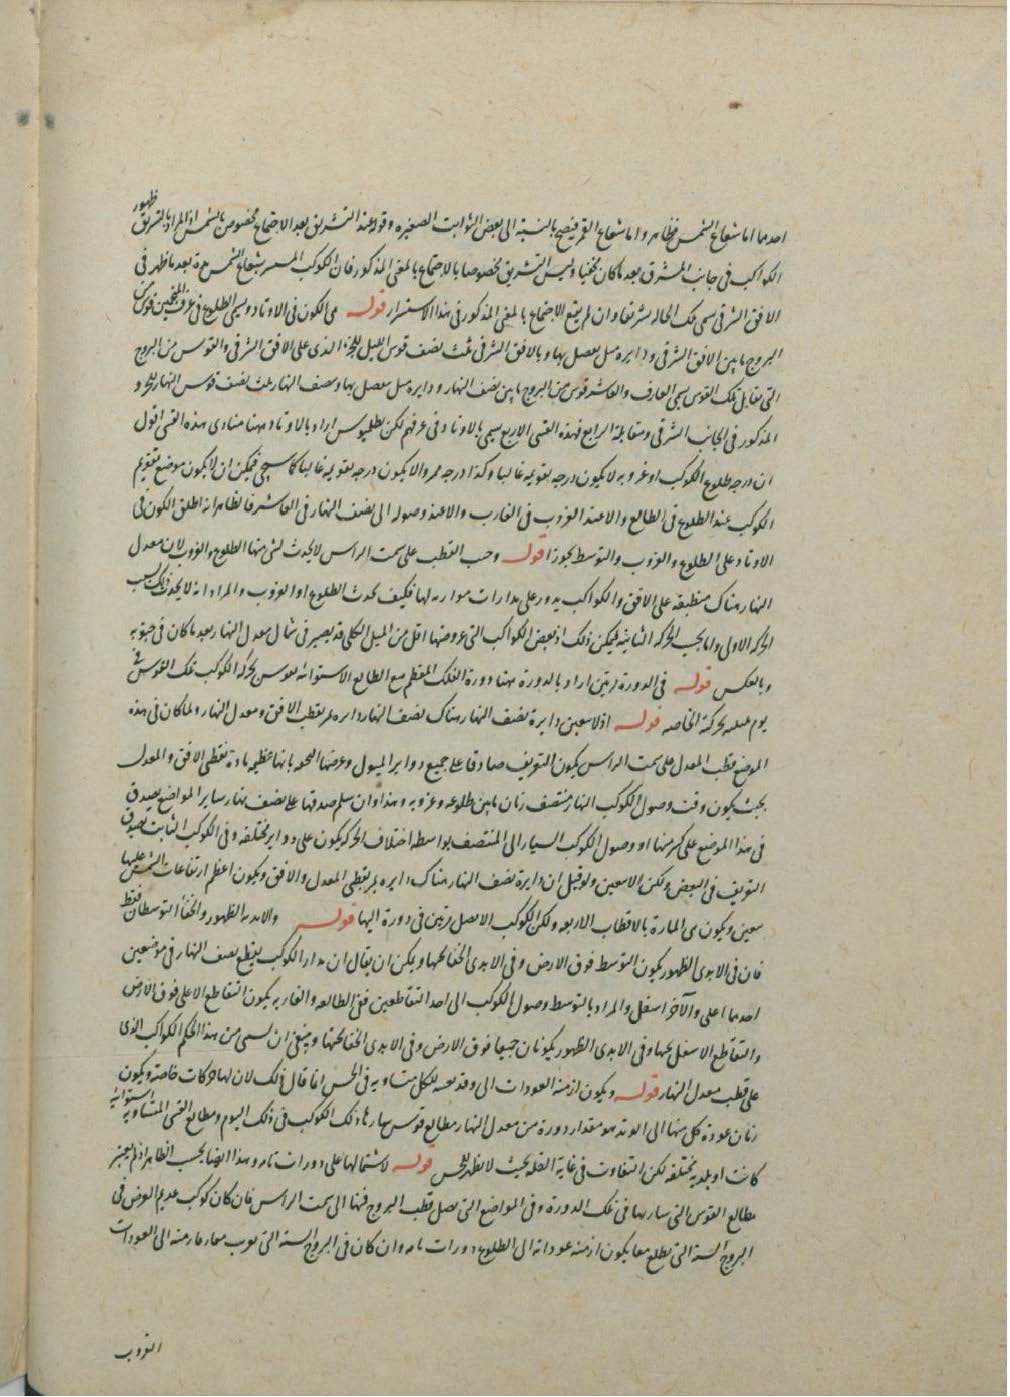 احدهما اما شعاع الشمس فظاهر واما شعاع القمر فيصح بالنسبة الى بعض الثوابت الصغيره وقوله عند التشريق بعد الاجتماع مخصوص بالشمس اذ المراد بالتشريق ظهور
الكواكب فى جانب المشرق بعد ما كان مختفيا وليس التشريق مخصوصا بالاجتماع بالمعنى المذكور فان الكوكب المستتر بشعاع الشمس مدة بعد ما ظهر فى
الافق الشرقى سمى تلك الحاله تشريقا وان لم يقع الاجتماع بالمعنى المذكور فى هذا الاستسرار قوله هى الكون فى الاوتاد ويسمى الطلوع فى عرف المنجمين قوس
البروج ما بين الافق الشرقى ودايره ميل يتصل بها وبالافق الشرقى ثلث نصف قوس الليل للجزء الذى على الافق الشرقى والقوس من البروج
التى تقابل تلك القوس يسمى الغارب والعاشر قوس من البروج ما بين نصف النهار ودايره ميل يتصل بها وبنصف النهار ثلث نصف قوس النهار للجزء
المذكور فى الجانب الشرقى ومقابله الرابع فهذه القسى الاربع يسمى بالاوتاد فى عرفهم لكن بطلميوس اراد بالاوتاد ههنا مبادى هذه القسى اقول
ان درجه طلوع الكوكب او غروبه لا يكون درجه تقويمه غالبا وكذا درجه ممره لا يكون درجه تقويمه غالبا كما سيجى فيمكن ان لا يكون موضع تقويم
الكوكب عند الطلوع فى الطالع ولا عند الغروب فى الغارب ولا عند وصوله الى نصف النهار فى العاشر فالظاهر انه اطلق الكون فى
الاوتاد على الطلوع والغروب والتوسط تجوزا قوله وحيث القطب على سمت الراس لا يحدث لشى منها الطلوع والغروب لان معدل
النهار هناك منطبقه على الافق والكواكب يدور على مدارات موازيه لها فكيف يحدث الطلوع او الغروب والمراد انه لا يحدث ذلك بسبب
الحركه الاولى واما بحسب الحركه الثانيه فيمكن ذلك اذ بعض الكواكب التى عروضها اقل من الميل الكلى قد يصير فى شمال معدل النهار بعد ما كان فى جنوبه
وبالعكس قوله فى الدورة مرتين اراد بالدورة ههنا دورة الفلك الاعظم مع الطالع الاستوائه لقوس يحركه الكوكب تلك القوس فى
يوم بليله بحركته الخاصه قوله اذ لا يتعين دايرة نصف النهار هناك نصف النهار دايره تمر بقطب الافق ومعدل النهار ولما كان فى هذه
الموضع قطب المعدل على سمت الراس يكون التعريف صادقا على جميع دواير الميول وعرضها بانها عظيمه مارة بقطبى الافق والمعدل
بحيث يكون وقت وصول الكوكب النهار منتصف زمان ما بين طلوعه وغروبه وهذا وان سلم صدقها على نصف نهار ساير المواضع يصدق
فى هذا الموضع على كل منها او وصول الكوكب السيار الى المنتصف بواسطه اختلاف الحركه يكون على دواير مختلفه وفى الكوكب الثابت يصدق
التعريف فى البعض ولكن لا يتعين ولو قيل ان دايرة نصف النهار هناك دايره تمر بقطبى المعدل والافق ويكون اعظم ارتفاعات الشمس عليها
يتعين ويكون هى المارة بالاقطاب الاربعه ولكن الكوكب لا يصل مرتين فى دورة اليها قوله والابديه الظهور والخفا التوسطان فقط
فان فى الابدى الظهور يكون التوسط فوق الارض وفى الابدى الخفا تحتها ويمكن ان يقال ان مدار الكوكب يقطع نصف النهار فى موضعين
احدهما اعلى والآخر اسفل والمراد بالتوسط وصول الكوكب الى احد التقاطعين ففى الطالعه والغاربه يكون التقاطع الاعلى فوق الارض
والتقاطع الاسفل تحتها وفى الابدى الظهور يكونان جميعا فوق الارض وفى الابدى الخفا تحتها وينبغى ان يستثنى من هذا الحكم الكواكب الذى
على قطب معدل النهار قوله ويكون ازمنه العودات الى وتد بعينه للكل متساويه فى الحس انما قال ذلك لان لها حركات خاصة ويكون
زمان عودة كل منها الى الوتد هو مقدار دورة من معدل النهار مع مطالع قوس سارها ذلك الكوكب فى ذلك اليوم ومطالع القسى المتساويه استوائيه
كانت او بلديه مختلفه لكن التفاوت فى غاية القله بحيث لا يظهر للحس قوله لاشتمالها على دورات تامه وهذا ايضا بحسب الظاهر اذ لم يعتبر
مطالع القوس التى سارها فى تلك الدورة وفى المواضع التى يصل قطب البروج فيها الى سمت الراس فان كان كوكب عديم العرض فى
البروج السته التى يطلع معا يكون ازمنه عوداته الى الطلوع دورات تامه وان كان فى البروج السته التى يغرب معا ازمنه الى العودات
الغروب